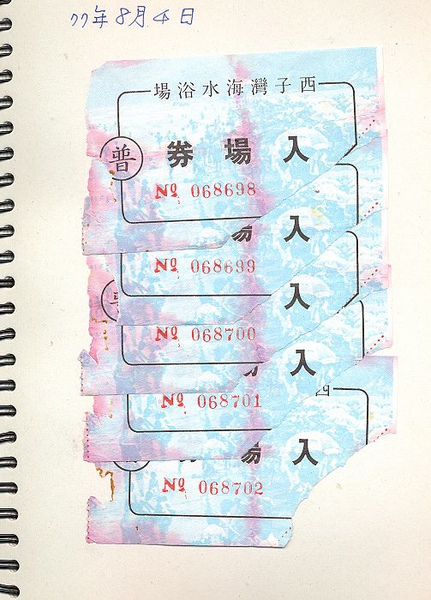 77年8月4日
西子灣海水浴場
入場券
普
№ 068698
入場
№ 068699
入
№ 068700
入
№ 068701
入場
№ 068702